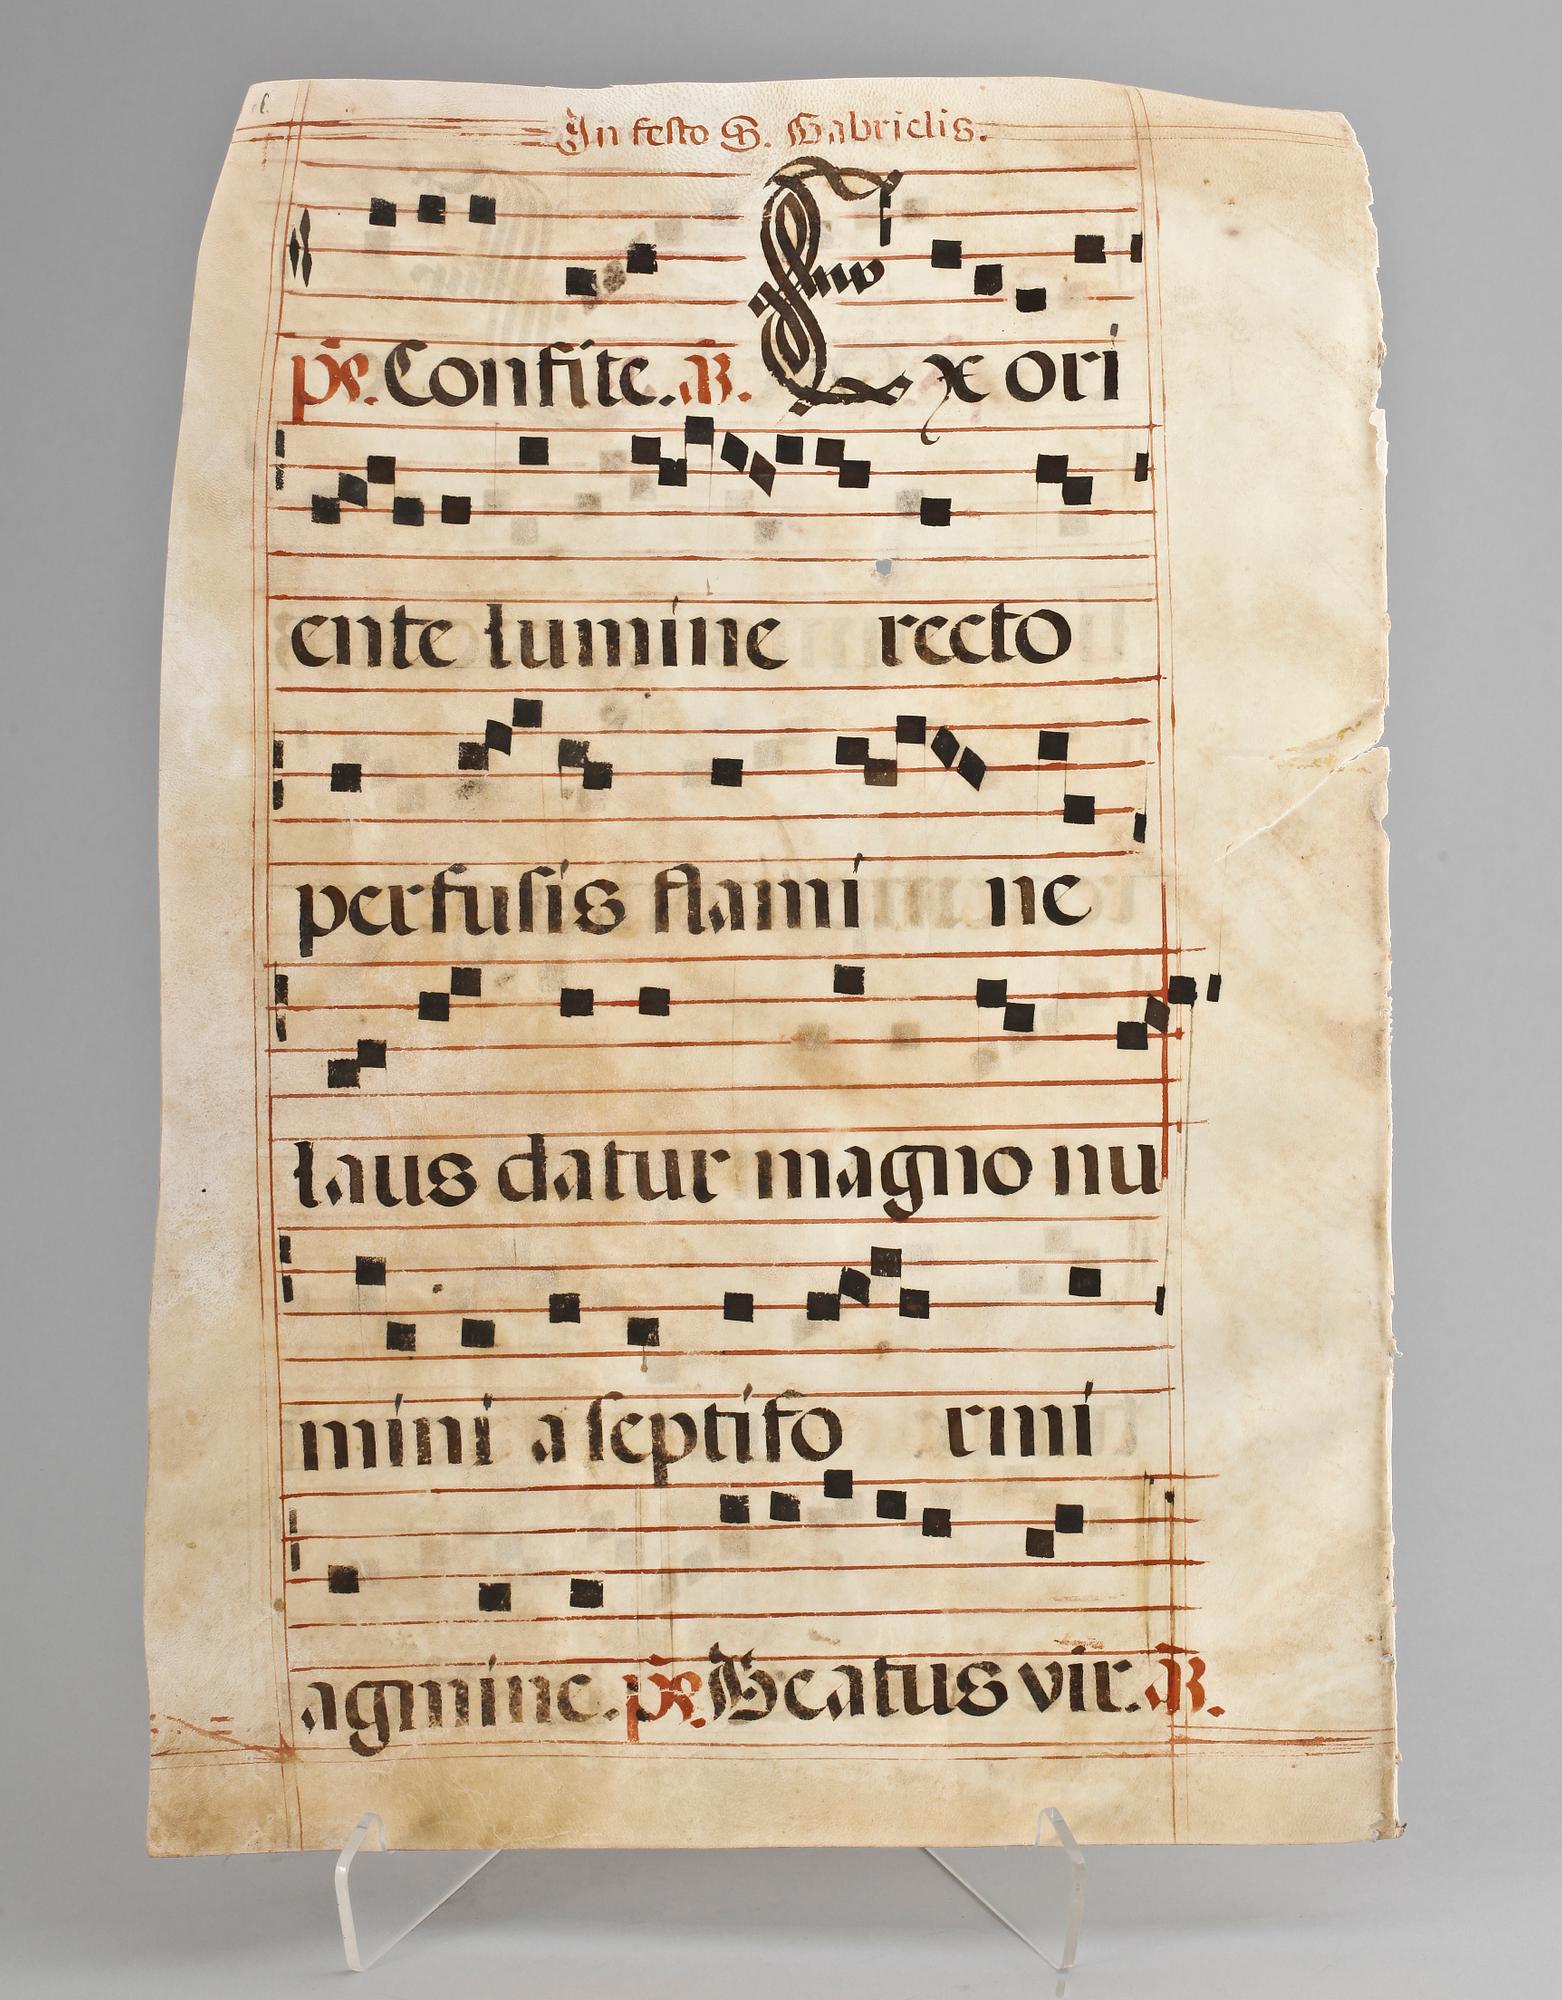 In festo S. Gabrielis.
ps. Confite. A. Ex ori
ente lumine recto
perfusis flami ne
laus datur magno nu
mini a septifo rmi
agmine. ps. Beatus vir. A.